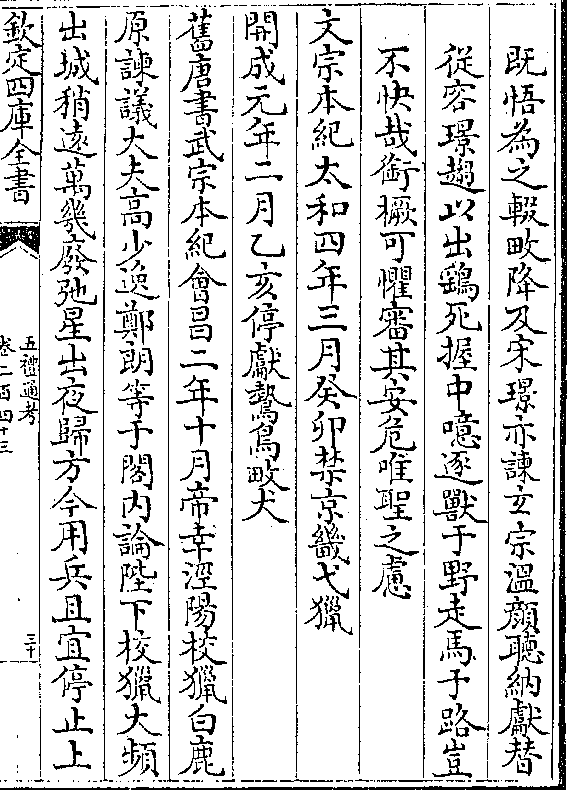 既悟為之輟畋降及宋璟亦諫玄宗溫顔聽納獻替
從容璟趨以出鷂死握中噫逐獸于野走馬于路豈
不快哉銜橛可懼審其安危唯聖之慮
文宗本紀太和四年三月癸卯禁京畿弋獵
開成元年二月乙亥停獻鷙鳥畋犬
舊唐書武宗本紀會昌二年十月帝幸涇陽校獵白鹿
原諫議大夫高少逸鄭朗等于閤内論陛下校獵太頻
出城稍遠萬幾廢弛星出夜歸方今用兵且宜停止上
欽定四庫全書
五禮通考
卷二百四十三
三十